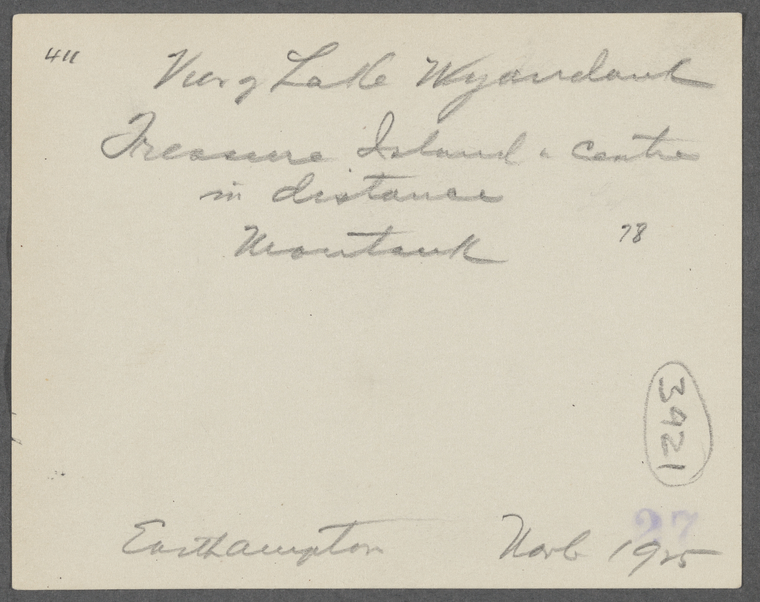 411
View of Lake Wyandank
Treasure Island in centre
in distance
Montauk
78
3921
27
Easthampton Nov 6 1925